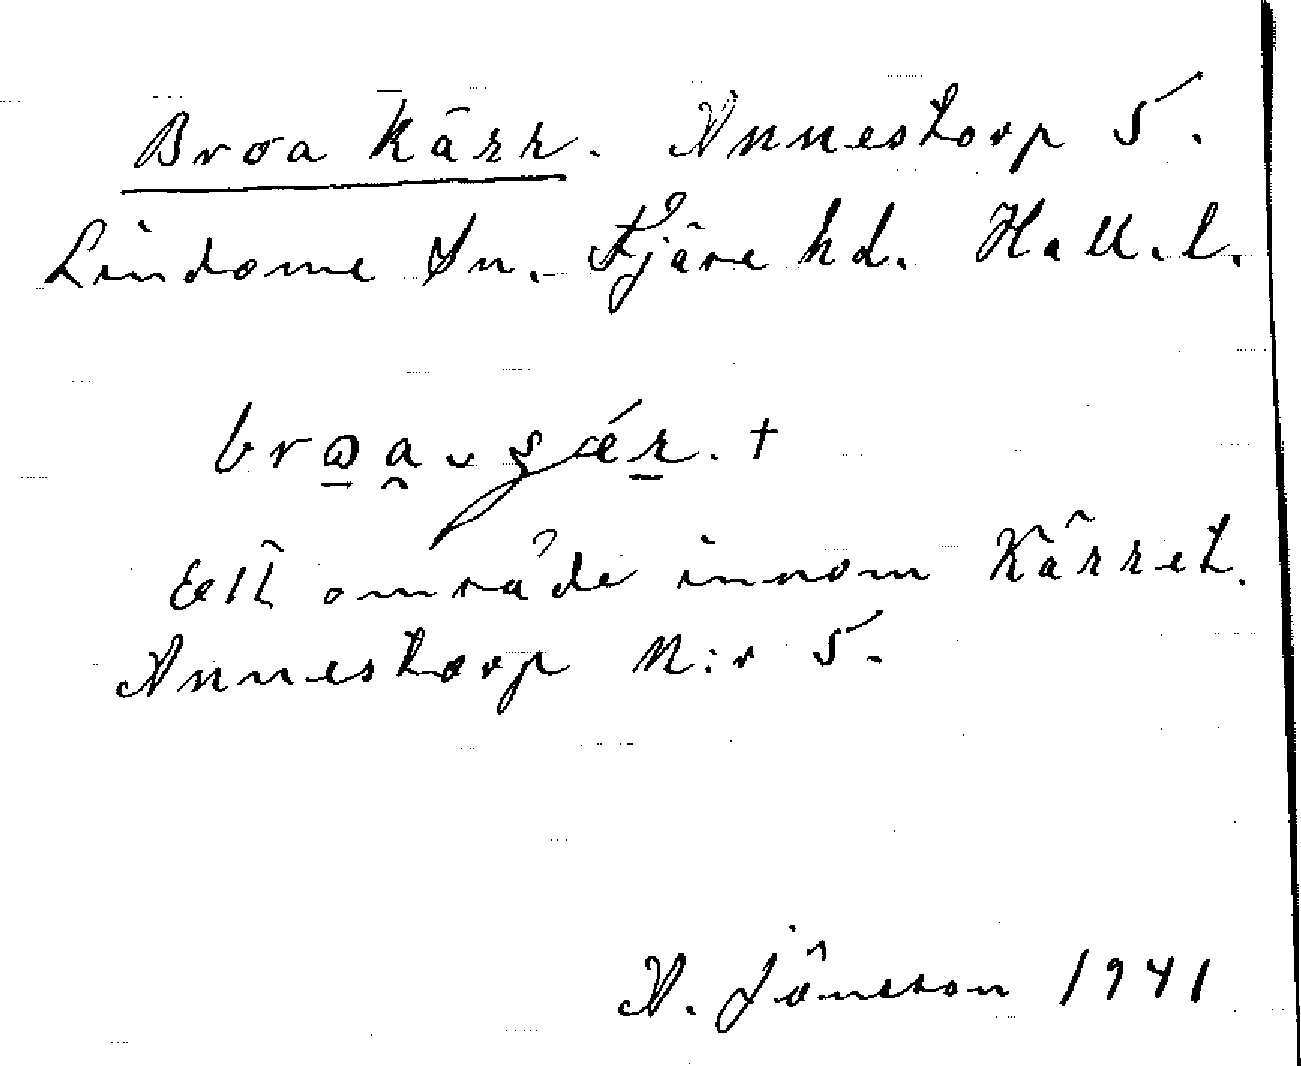 Broa Kärr. Annestorp 5.
Lindome Sn. Fjäre hd. Hall.l.
Ett område innom Kärret.
Annestorp N:r 5.
A. Jönsson 1941